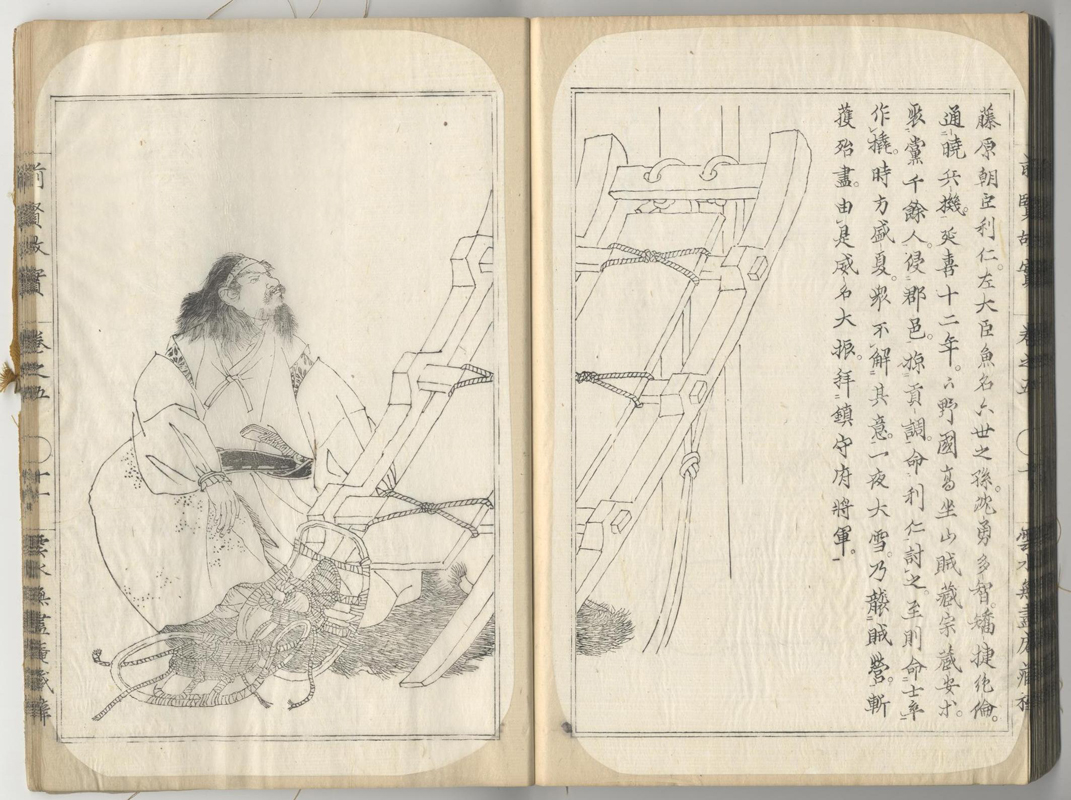 藤原朝臣利仁。左大臣魚名六世之孫。沈勇多智。矯捷絶倫。
通曉兵機。延喜十二年。下野國高坐山賊藏宗藏安等。
聚黨千餘人。侵郡邑。掠貢調。命利仁討之。至則命士卒
作橇。時方盛夏。衆不解其意。一夜大雪。乃襲賊營。斬
獲殆盡。由是威名大振。拜鎮守府將軍。
前賢故實 卷之五 十一 雲水無盡庵藏